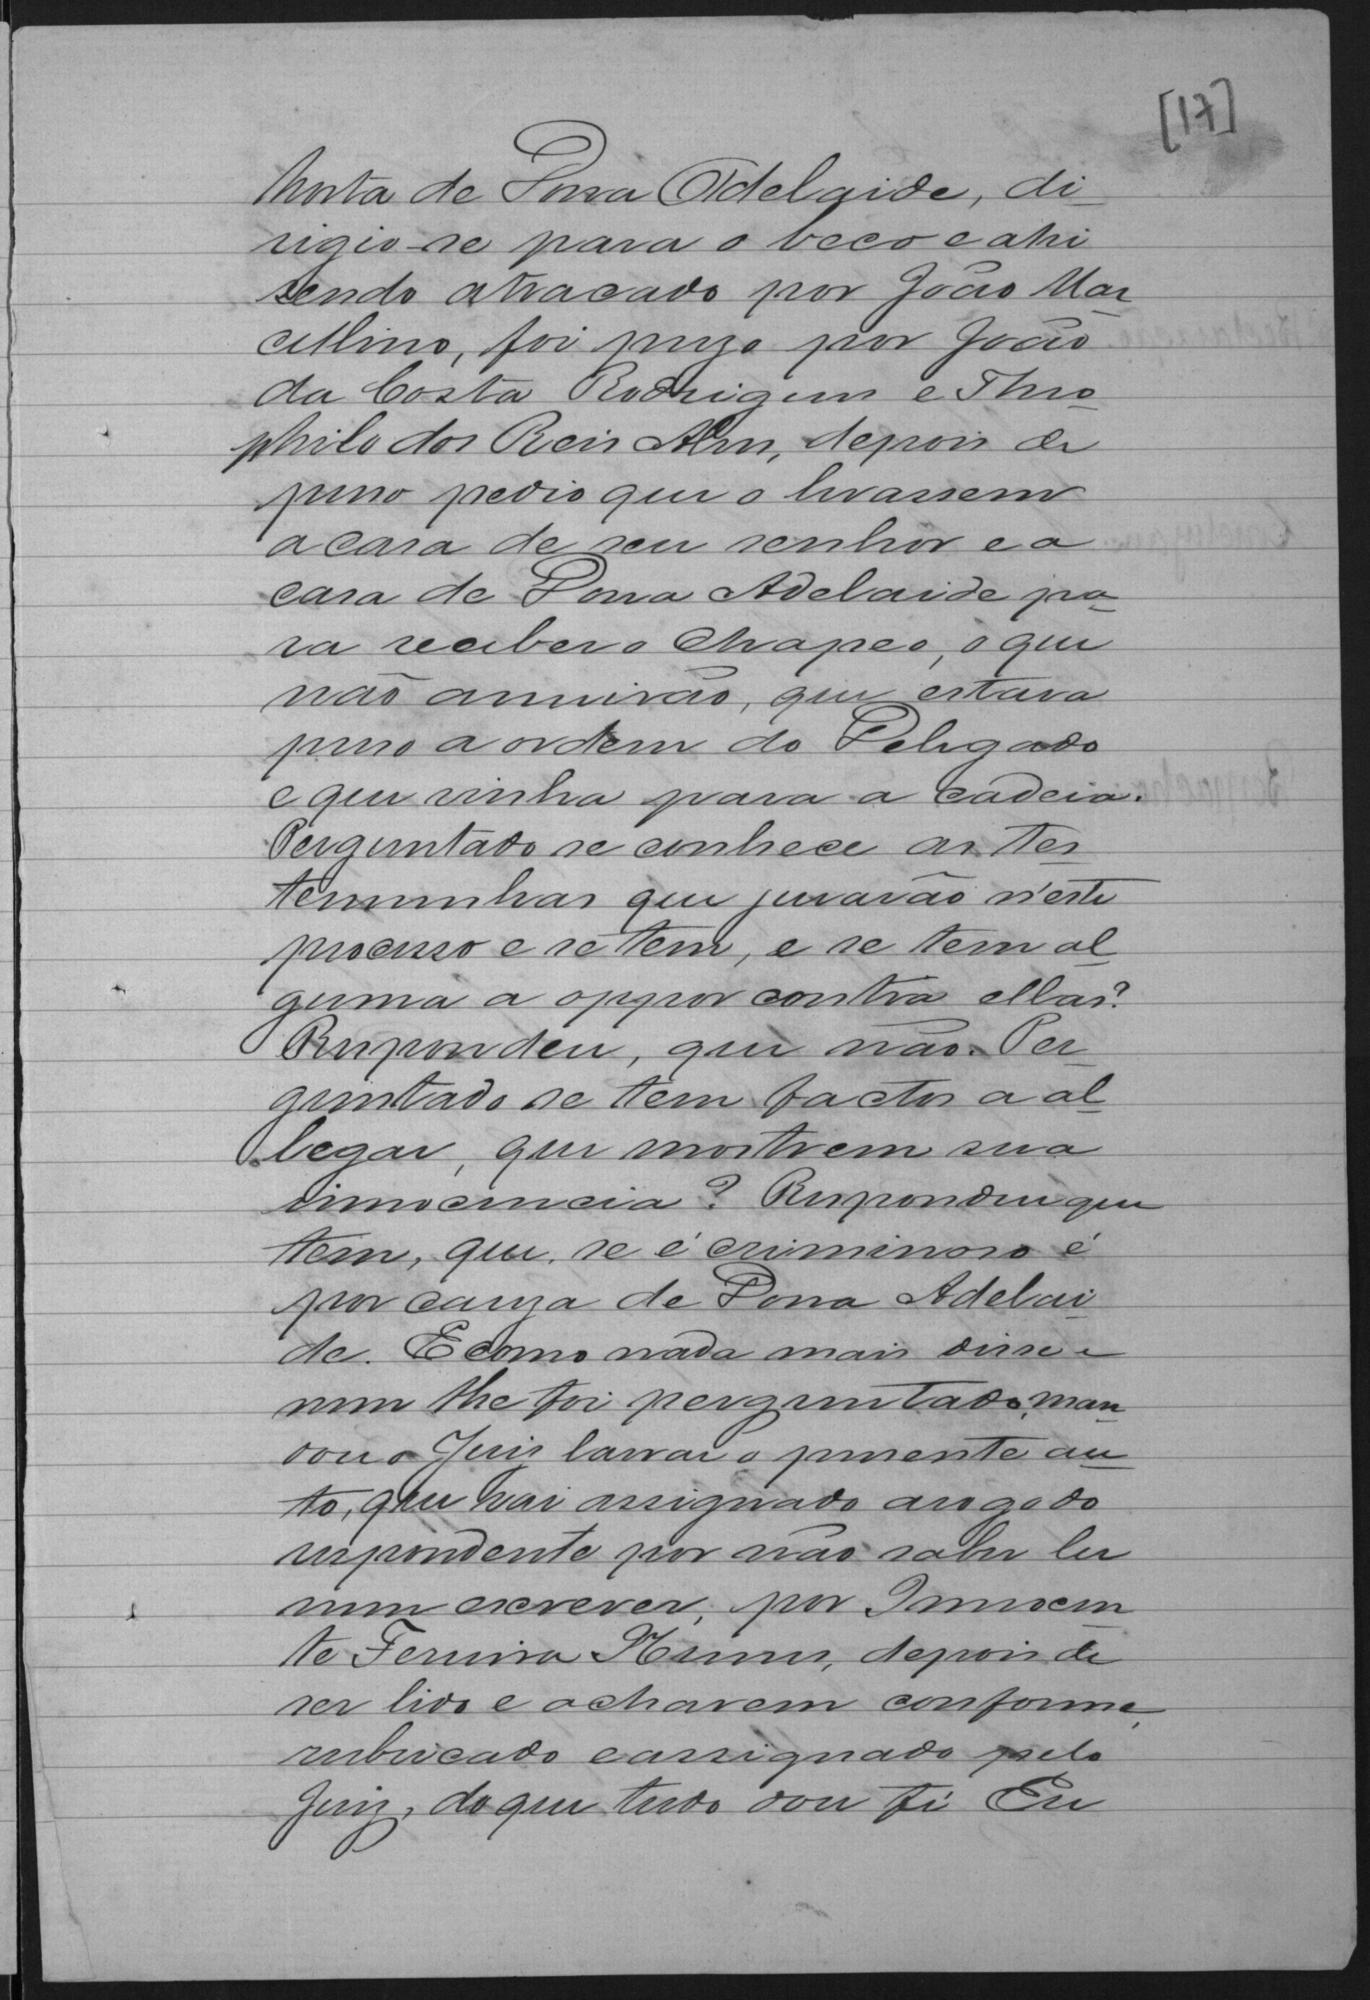 [17]
horta de Dona Adelaide, di
rigio-se para o beco e ahi
sendo atracado por João Mar
cellino, foi prezo por João
da Costa Rodrigues e Theo
philo dos Reis Alves, depois de
preso pedio que o levassem
a casa de seu senhor e a
casa de Dona Adelaide pa
ra receber o chapeo, o que
não annuirão, que estava
preso a ordem do Delegado
e que vinha para a cadeia.
Perguntado se conhece as tes
temunhas que jurarão n'este
processo e se tem, e se tem al
guma a oppor contra ellas?
Respondeu, que não. Per
guntado se tem factos a al
legar, que mostrem sua
innocencia? Respondeu que
tem, que, se é criminoso é
por cauza de Dona Adelai
de. E como nada mais disse e
nem lhe foi perguntado, man
dou o Juiz lavrar o presente au
to, que vai assignado arogo do
respondente por não saber ler
nem escrever, por Innocen
te Ferreira Nunes, depois de
ser lido e acharem conforme,
rubricado e assignado pelo
Juiz, do que tudo dou fé Eu